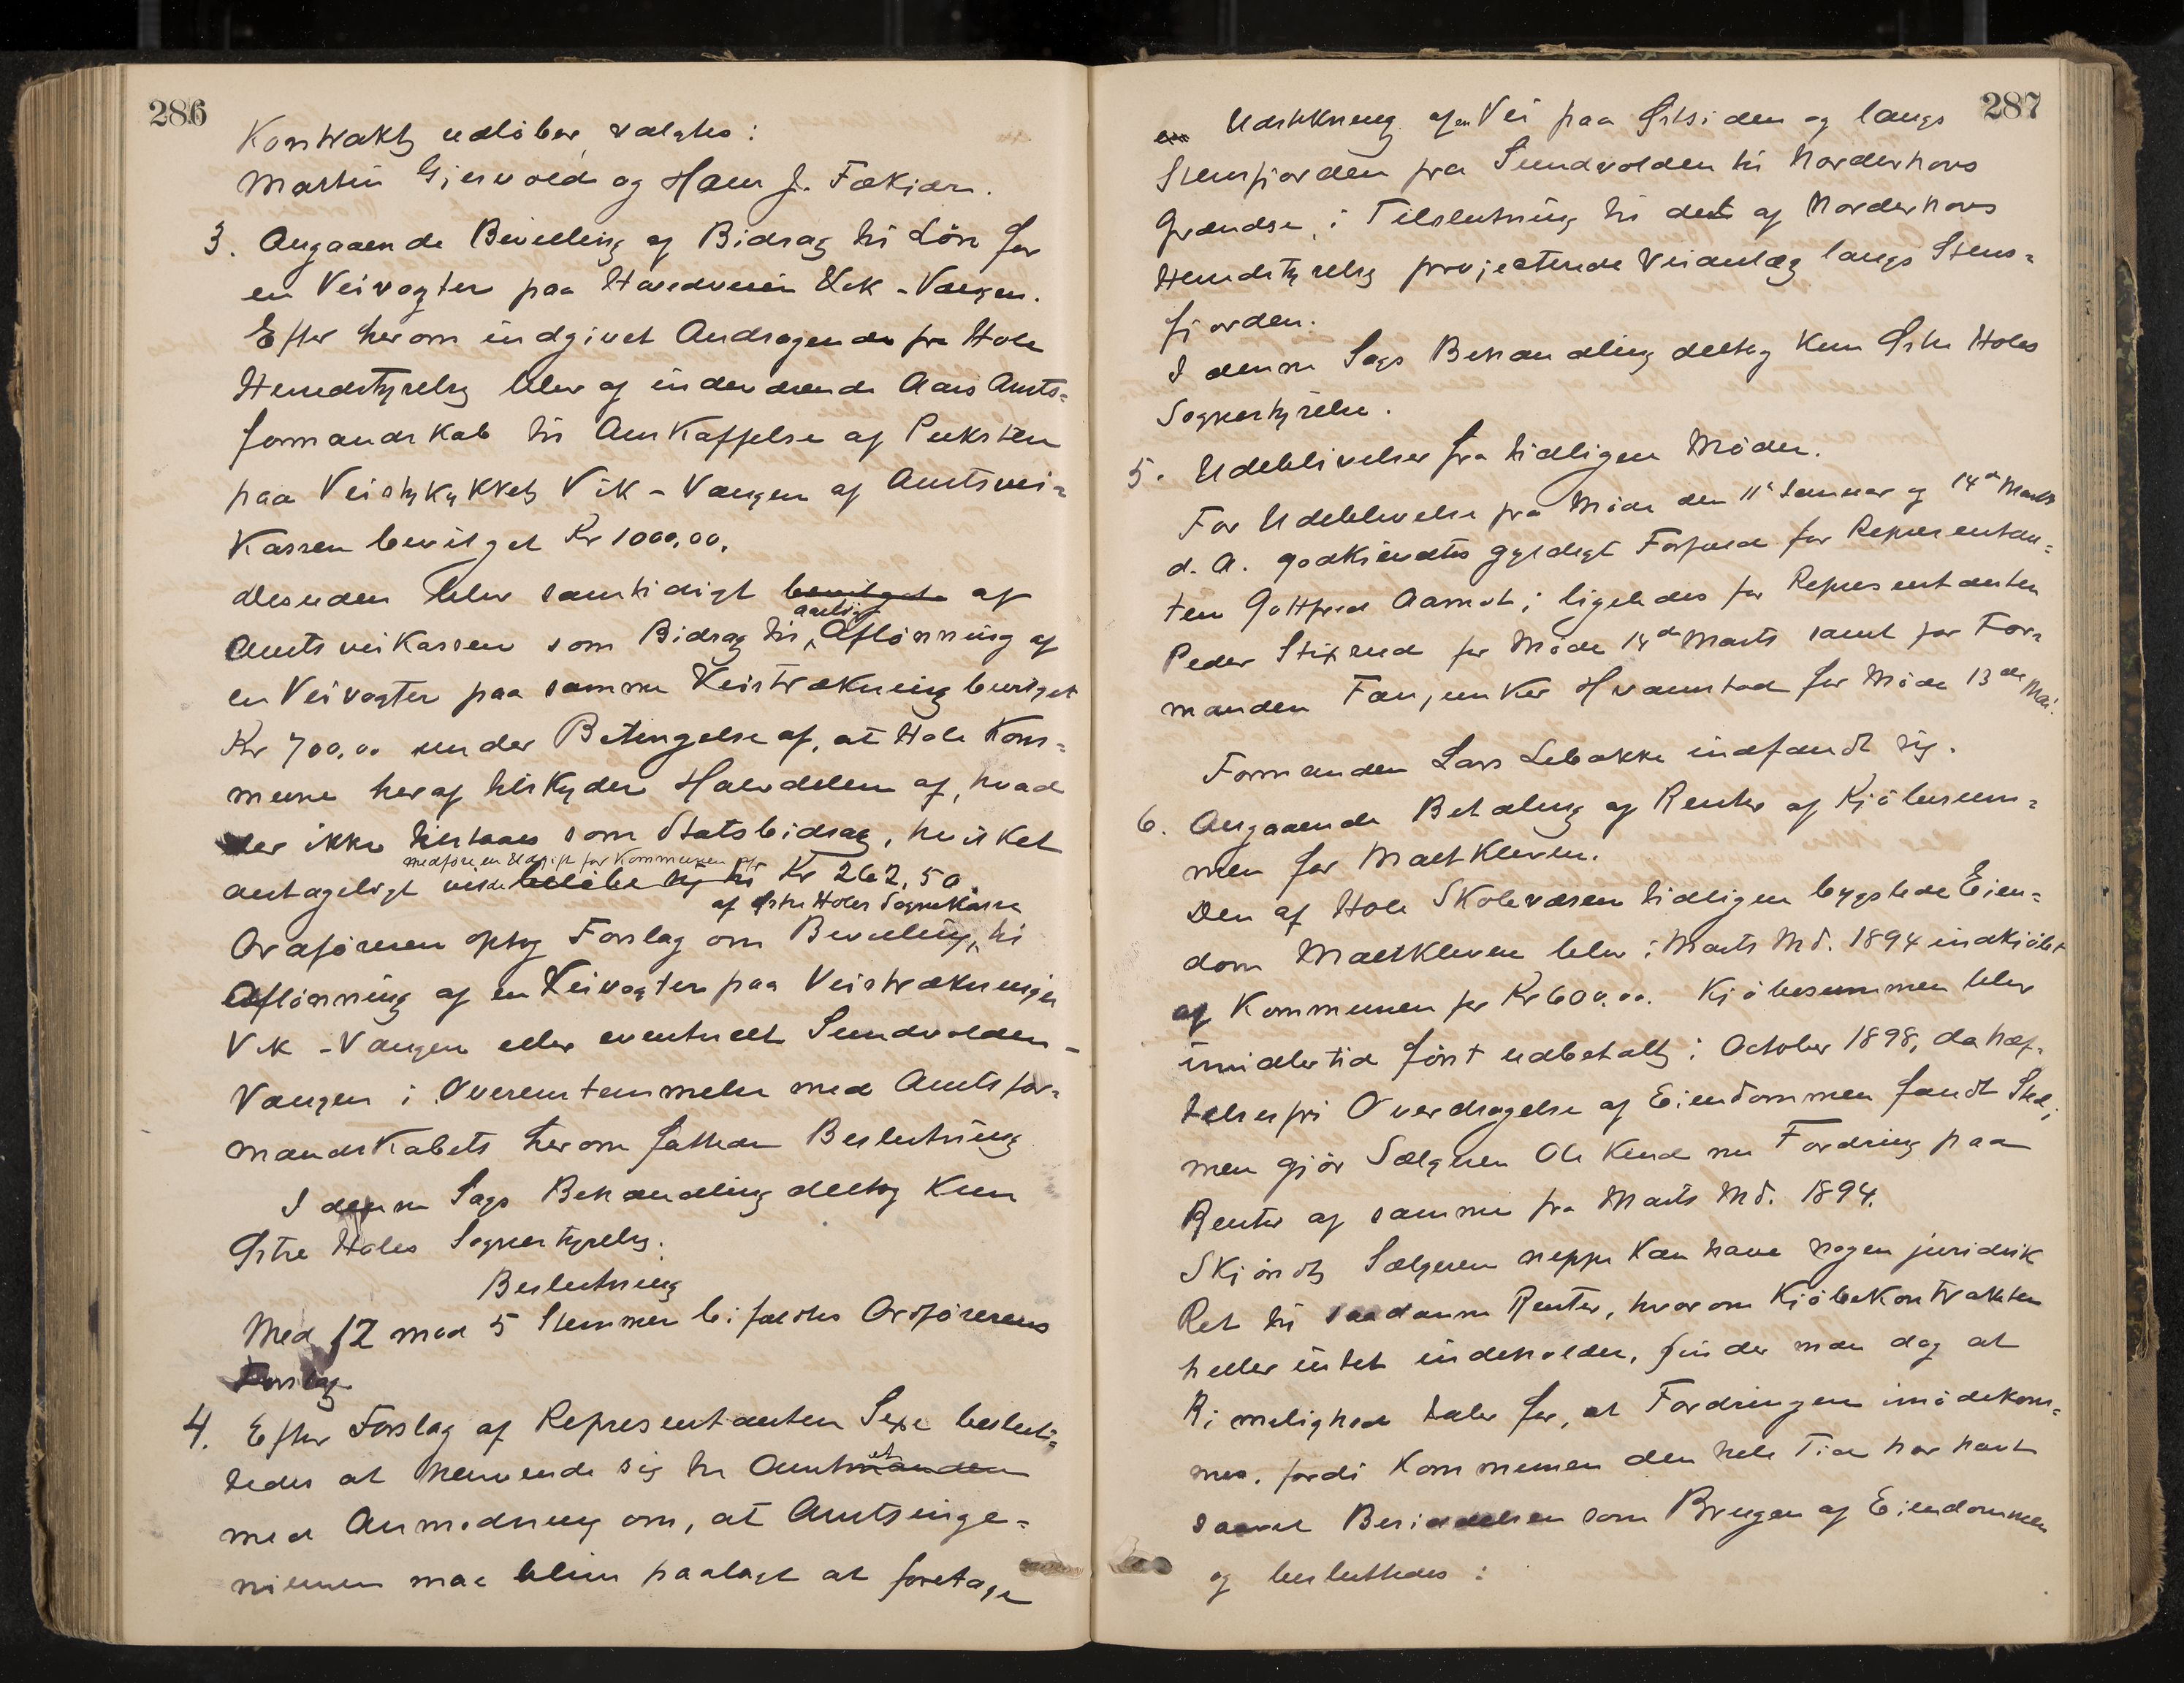 286
Kontrakt udlöber, valgtes:
Martin Gjesvold og Hans J. Fækjær.
3. Angaaende Bevilling af Bidrag til Lön for
en Veivogter paa Hovedveien Vik - Vangen.
Efter herom indgivet Andragende fra Hole
Herredstyrelse blev af inderværende Aars Amts=
formandskab til Anskaffelse af Puksten
paa Veistykket Vik - Vangen af Amtsvei=
kassen bevilget Kr 1000,00.
Desuden blev samtidigt bevilget af
Amtsveikassen som Bidrag til aarlig Aflönning af
en Veivogter paa samme Veistrækning bevilget
Kr 700,00 under Betingelse af, at Hole Kom=
mune heraf tilskyder Halvdelen af, hvad
der ikke tilstaaes som Statsbidrag, hvilket
medföre en Udgift for Kommunen af
antageligt vilde belöbe sig til Kr 262,50.
af Östre Holes Sognekasse
Ordföreren optog Forslag om Bevilling til
Aflönning af en Veivogter paa Veistrækningen
Vik - Vangen eller eventuelt Sundvolden -
Vangen i Overensstemmelse med Amtsfor=
mandskabets herom fattede Beslutning
I denne Sags Behandling deltog kun
Östre Holes Sognestyrelse.
Beslutning
Med 12 mod 5 Stemmer bifaldtes Ordförerens
Forslag.
4. Efter Forslag af Repræsentanten Sexe beslut=
tedes at henvende sig til Amtmanden et
med Anmodning om, at Amtsinge=
niören maa blive paalagt at foretage
287
en Udstikning af en Vei paa Östsiden og langs
Stensfjorden fra Sundvolden til Norderhovs
Grændse, i Tilslutning til det af Norderhovs
Herredstyrelse projecterede Veianlæg langs Stens=
fjorden.
I denne Sags Behandling deltog kun Östre Holes
Sognestyrelse.
5. Udeblivelser fra tidligere Möder.
For Udeblivelse fra Möde den 11te Januar og 14de Marts
d. A. godkjendtes gyldigt Forfald for Repræsentan=
ten Gottfred Aamodt; ligeledes for Repræsentanten
Peder Stixrud for Möde 14de Marts samt for For=
manden Fanejunker Hvamstad for Möde 13de Mai.
Formanden Lars Lebakke indfandt sig.
6. Angaaende Betaling af Renter af Kjöbesum=
men for Maltkleven.
Den af Hole Skolevæsen tidligere bygslede Eien=
dom Maltkleven blev i Marts Md. 1894 indkjöbt
af Kommunen for Kr 600.00. Kjöbesummen blev
imidlertid först udbetalt i October 1898, da hæf=
telsesfri Overdragelse af Eiendommen fandt Sted,
men gjör Sælgeren Ole nu Fordring paa
Renter af samme fra Marts Md. 1894.
Skjöndt Sælgeren neppe kan have nogen juridisk
Ret til saadanne Renter, hvorom Kjöbekontrakten
heller intet indeholder, finder man dog at
Rimelighed taler for, at Fordringen imödekom=
mes, fordi Kommunen den hele Tid har havt
saavel Besiddelsen som Brugen af Eiendommen
og besluttedes: